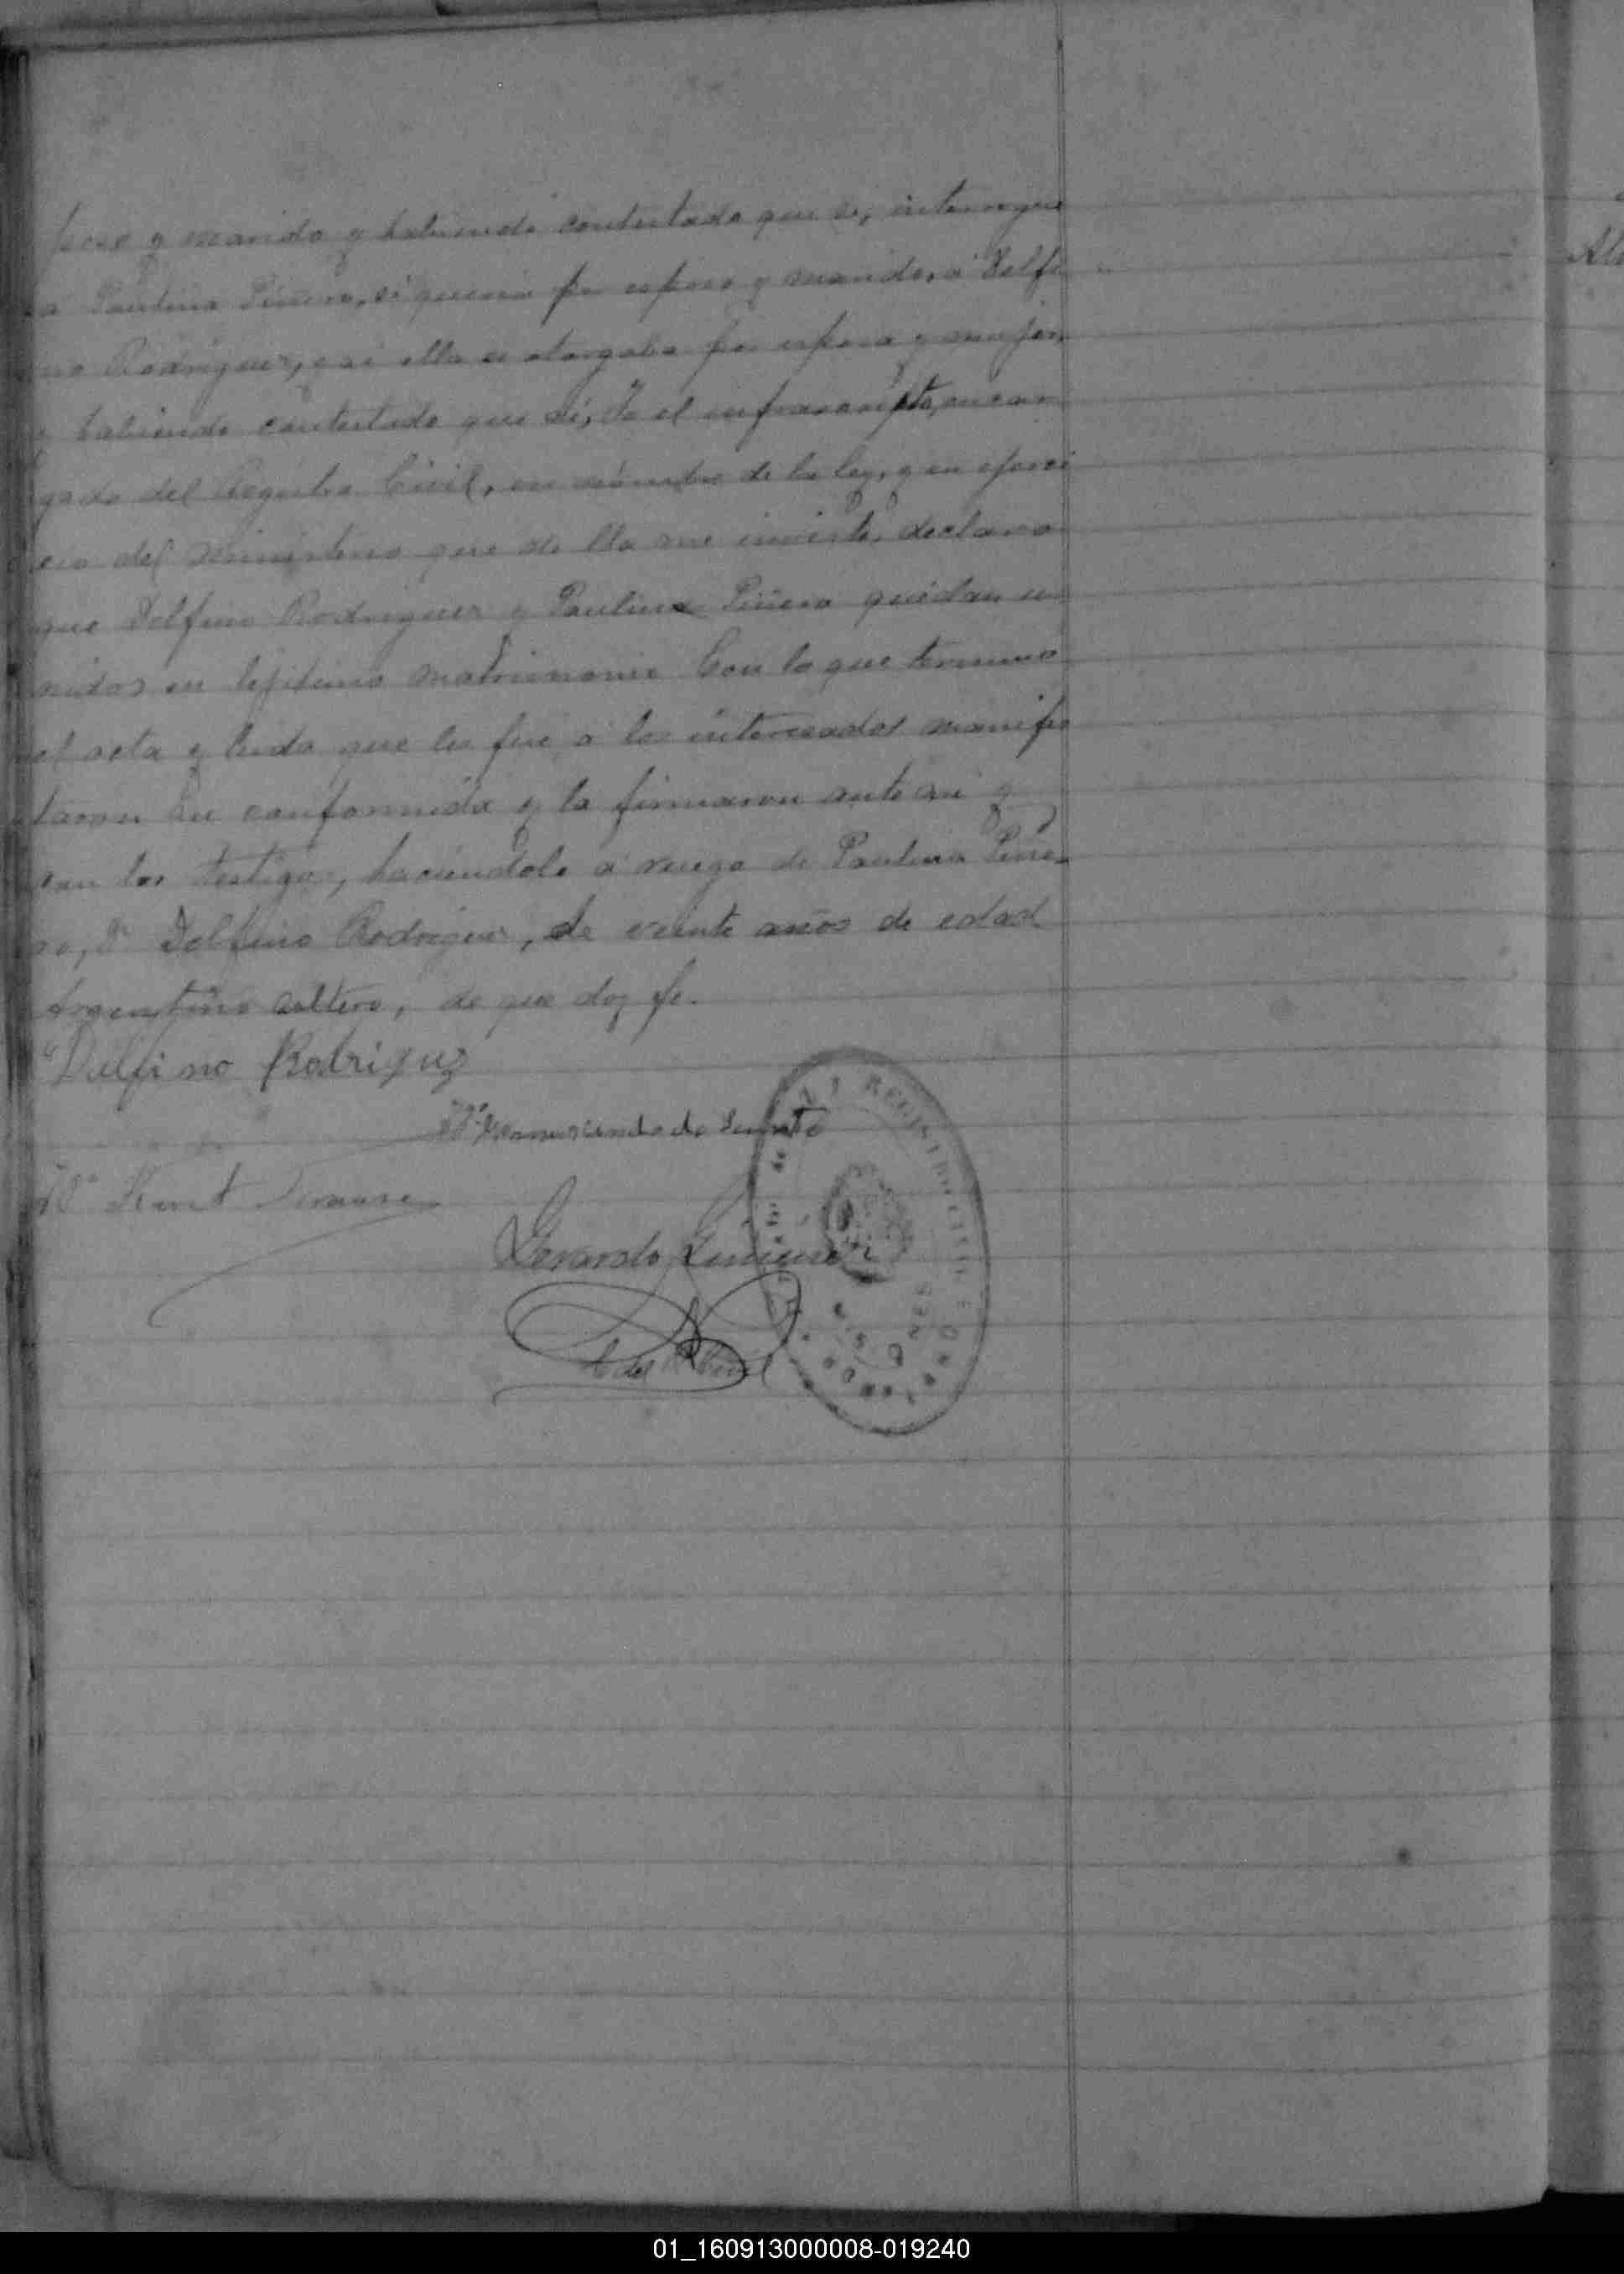 poso y marido y habiendo contestado que si, interrogue
a Paulina Piñero, si queria por esposo y marido, a Delfi
no Rodriguez, y si ella se otorgaba por esposa y mujer,
y habiendo contestado que si, Yo el infrascripto, encar
gado del Registro Civil, en nombre de la ley, y en ejerci
cio del Ministerio que de lla me inviste, declaro
que Delfino Rodriguez y Paulina Piñero quedan u
nidos en lejitimo matrimonio Con lo que termino
el acta y leida que les fue a los interesados manifes
taron su conformida y la firmaron ante mi y
con los testigos, haciendolo a ruego de Paulina Piñe
ro, Dn Delfino Rodriguez, de veinte años de edad
Argentino soltero, de que doy fe.
Delfino Rodriguz
Gerardo
REGISTRO CIVIL
Alo
01_160913000008-019240